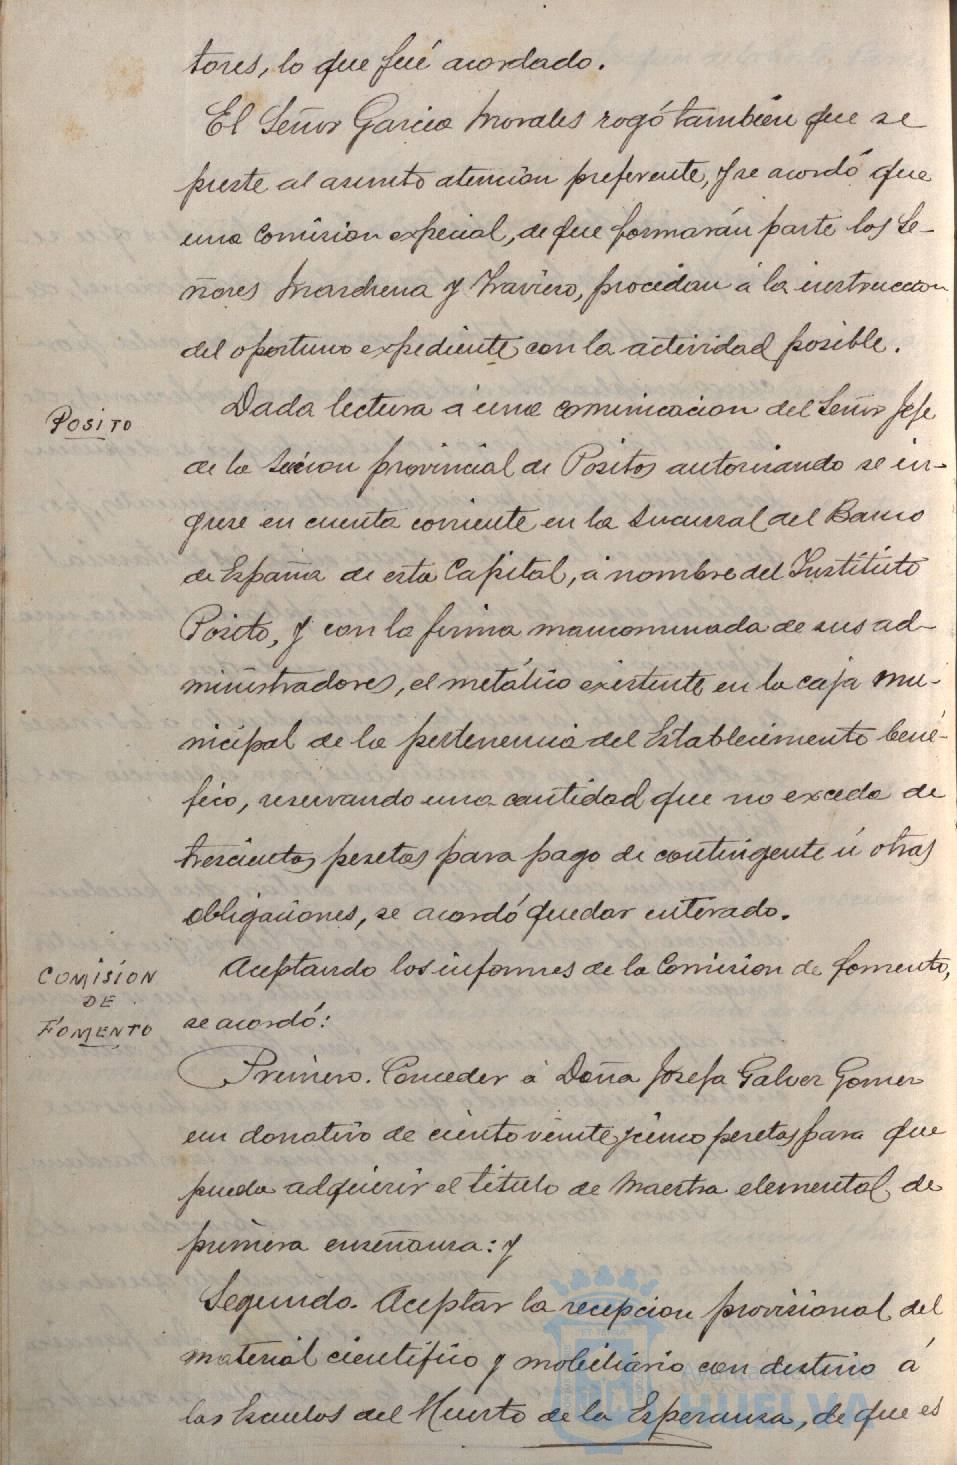 tores, lo que fué acordado.
El Señor Garcia Morales rogó tambien que se
preste al asunto atencion preferente, y se acordó que
una Comision especial, de que formarán parte los Se-
ñores Marchena y Traviero, procedan á la instruccion
del oportuno expediente con la actividad posible.
POSITO
Dada lectura á una comunicacion del Señor Jefe
de la Seccion provincial de Positos autorisando se in-
grese en cuenta corriente en la Sucursal del Banco
de España de esta Capital, á nombre del Instituto
Posito, y con la firma mancomunada de sus ad-
ministradores, el metálico existente en la caja mu-
nicipal de la pertenencia del Establecimiento bené-
fico, reservando una cantidad que no exceda de
trescientas pesetas para pago de contingente ú otras
obligaciones, se acordó quedar enterado.
COMISION
DE
FOMENTO
Aceptando los informes de la Comision de fomento,
se acordó:
Primero. Conceder á Doña Josefa Galvez Gomez
un donativo de ciento veinte y cinco pesetas para que
pueda adquirir el titulo de Maestra elemental de
primera enseñansa: y
Segundo. Aceptar la recepcion provisional del
material cientifico y mobiliario con destino á
las Escuelas del Huerto de la Esperansa, de que es
HUELVA